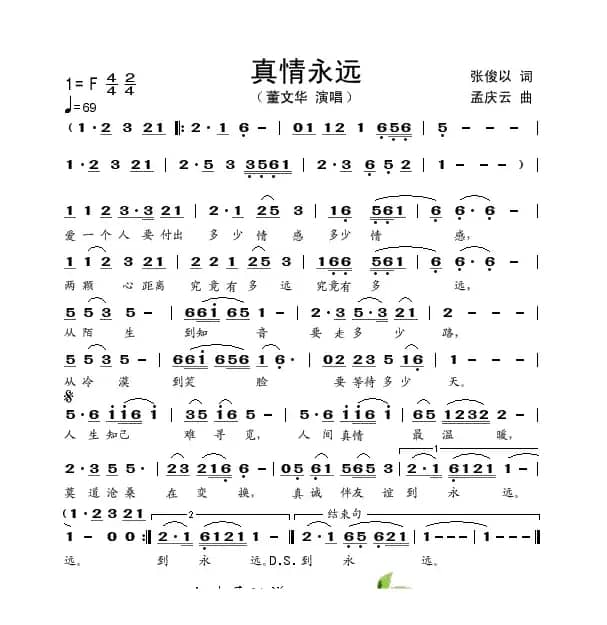 真情永远
1= F 4/4 2/4
♩=69
（董文华 演唱）
张俊以 词
孟庆云 曲
( 1·2 3 21 ‖: 2·1 6 - | 01 12 1 656 | 2 - - - |
1·2 3 21 | 2·5 3 3561 | 2·3 6 52 | 1 - - - )
1 1 2 3·3 21 | 2·1 25 3 | 16 561 | 6 6· 2 - |
爱一个人要付出 多少情感多少情感，
1·2 3 21 | 2 2 1 25 3 | 166 561 | 6 6· 6 - |
两颗心距离究竟有多远究竟有多远，
5 5 3 5 - | 661 65 1 - | 2·3 5·3 21 | 2 - - - |
从陌生到知音要走多少路，
5 5 3 5 - | 661 656 1 6· | 02 23 5 16 | 1 - - - |
从冷漠到笑脸要等待多少天。
5·6 1161 | 35 165 - | 1·6 1161 | 65 1232 - |
人生知己难寻觅，人间真情最温暖，
2·3 5 5 - | 23 216 6 - | 05 61 565 3 | 2·1 6121 | 1 - - - |
莫道沧桑在变换，真诚伴友谊到永远。
1
(1·2 3 21
2
结束句
1 - 0 0 :‖ 2·1 6121 | 1 - - - ‖ 2·1 65 621 | 1 - - - | 1 - - - ‖
远。到永远。D.S.到永远。